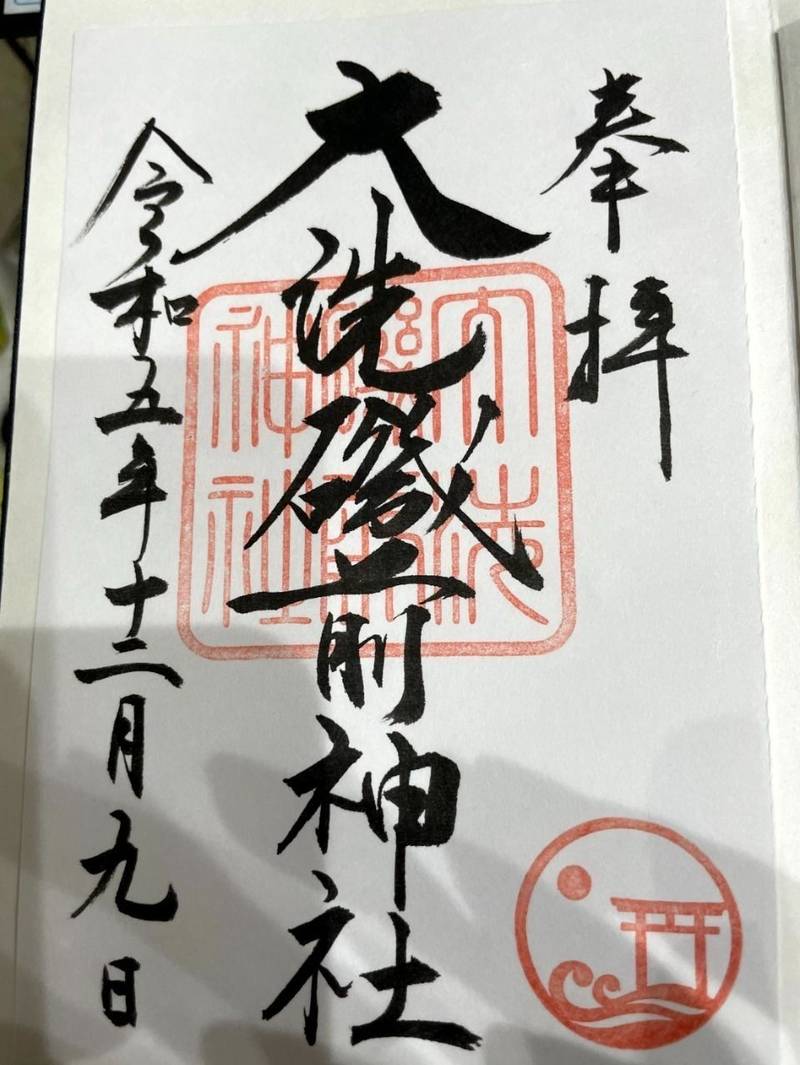 奉拝
大洗磯前神社
大洗磯前神社
令和五年十二月九日